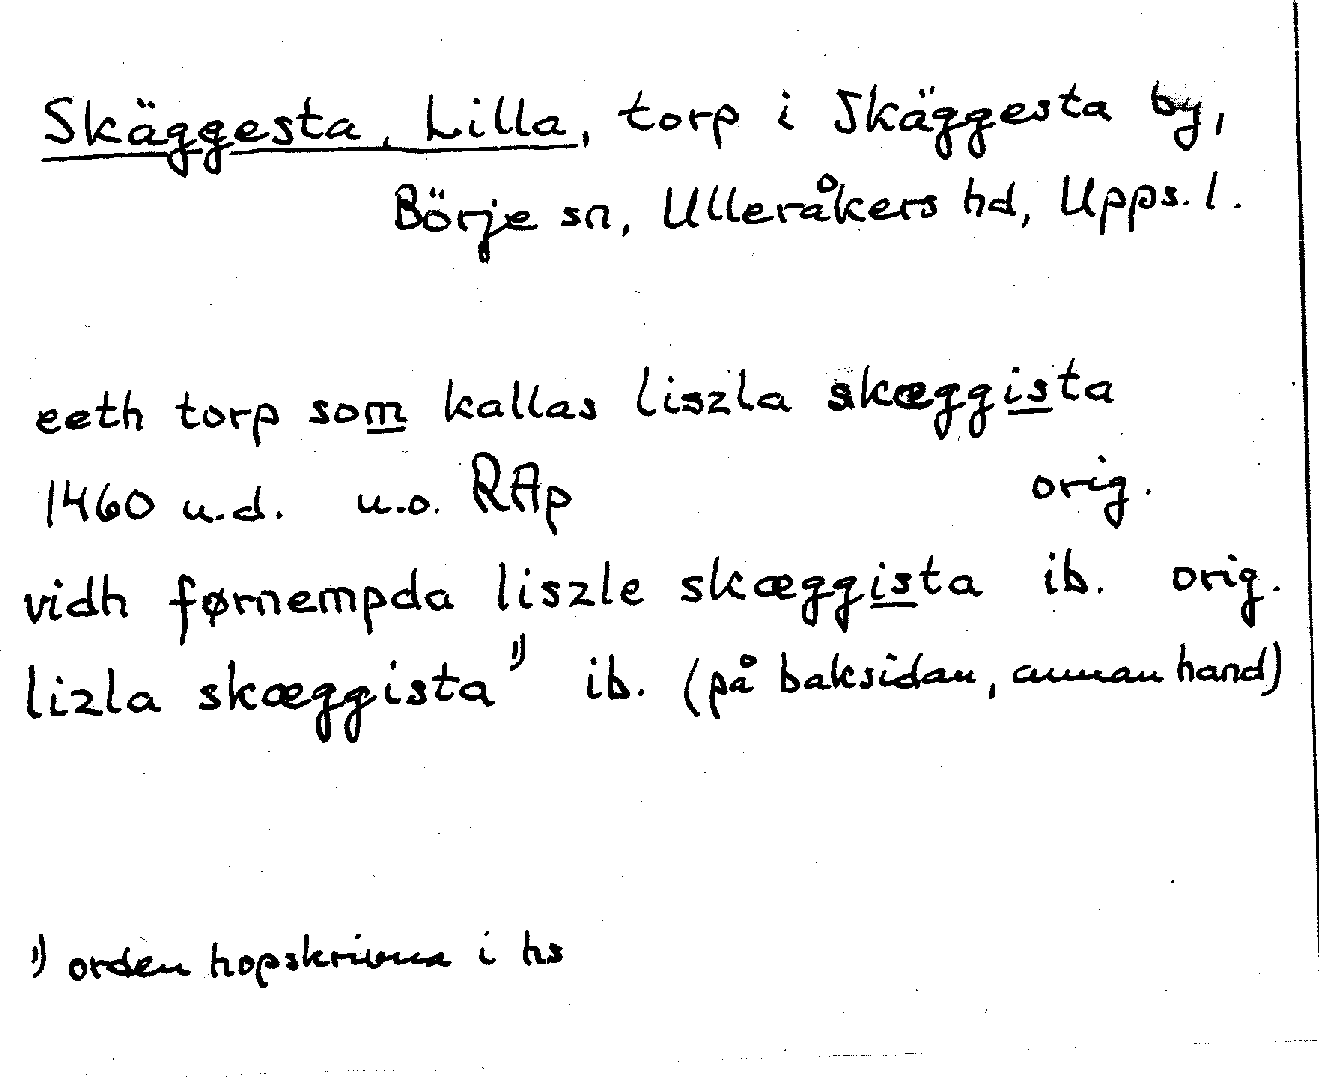 Skäggesta, Lilla, torp i Skäggesta by,
Börje sn, Ulleråkers hd, Upps. l.
eeth torp som kallas liszla skæggista
1460 u.d. u.o. RAp orig.
vidh førnempda liszle skæggista ib. orig.
lizla skæggista 1) ib. (på baksidan, annan hand)
1) orden hopskrivna i hs